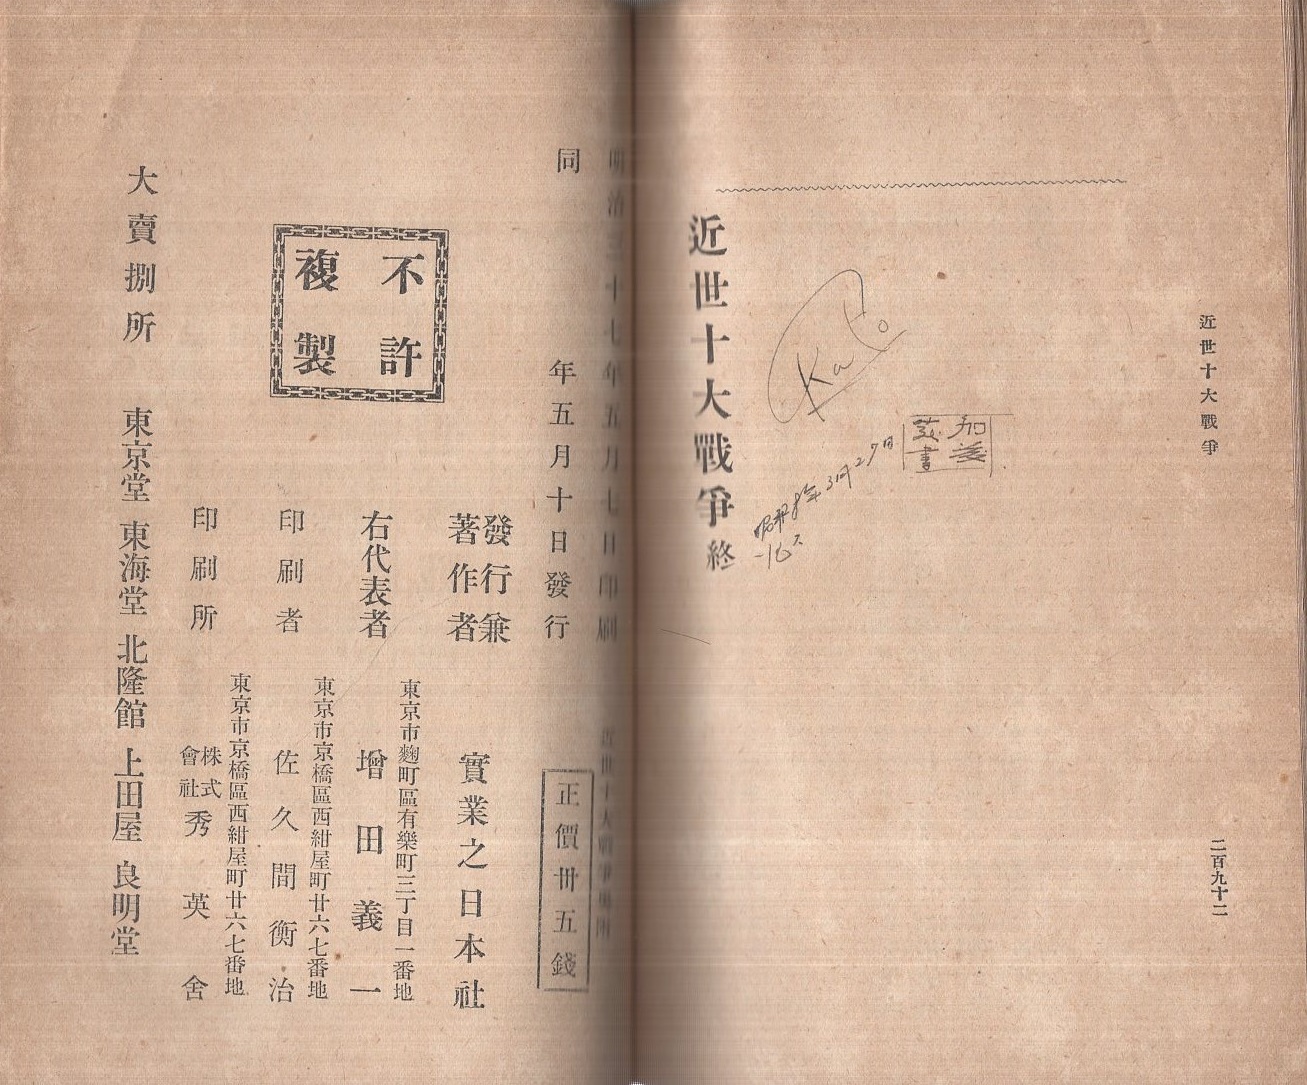 近世十大戰爭
二百九十二
Ka Co
加姜
蔵書
3月27日
-16才
近世十大戰爭終
明治三十七年五月七日印刷
同年五月十日發行
正價卅五錢
發行兼
著作者
實業之日本社
東京市麴町區有樂町三丁目一番地
右代表者 增田義一
東京市京橋區西紺屋町廿六七番地
印刷者 佐久間衡治
東京市京橋區西紺屋町廿六七番地
印刷所 株式會社 秀英舍
不許
複製
大賣捌所 東京堂 東海堂 北隆館 上田屋 良明堂